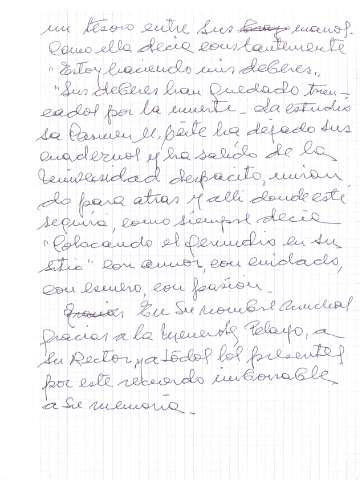 un tesoro entre sus manos.
Como ella decía constantemente
"Estoy haciendo mis deberes"
"Sus deberes han quedado trun-
cados por la muerte. La estudio
sa Carmen M. ha dejado sus
cuadernos y ha salido de la
Universidad despacito, miran
do para atras y alli donde esté
seguirá, como siempre decía
"Colocando el gerundio en su
sitio" con amor, con cuidado,
con esmero, con pasión.
En su nombre muchas
gracias a la Menendez Pelayo, a
su Rector, y a todos los presentes
por este recuerdo imborrable
a su memoria.